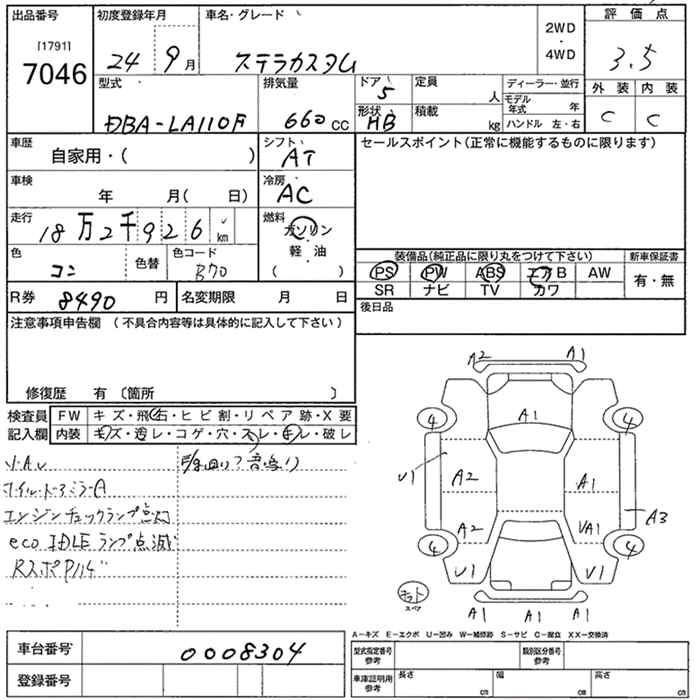 出品番号 初度登録年月 車名・グレード 評価点
[1791]
7046
24 9月 ステラカスタム 2WD・4WD 3.5
型式 排気量 ドア 定員 ディーラー・並行 外装 内装
5 人 モデル年式 年
DBA-LA110F 660cc 形状 HB 積載 kg ハンドル 左・右 C C
車歴 自家用・( ) シフト AT セールスポイント(正常に機能するものに限ります)
車検 年 月( 日) 冷房 AC
走行 18万2千926km 燃料 ガソリン
軽・油
( )
色 コン 色替 色コード B70 装備品(純正品に限り丸をつけて下さい) 新車保証書
PS PW ABS エアB AW 有・無
SR ナビ TV カワ
R券 8490円 名変期限 月 日 後日品
注意事項申告欄 (不具合内容等は具体的に記入して下さい)
修復歴 有 〔箇所 〕
検査員 FW キズ・飛石・ヒビ割・リペア跡・X要
記入欄 内装 キズ・汚レ・コゲ・穴・スレ・キレ・破レ
エンジンチェックランプ点灯
eco IDLE ランプ点滅
A2 A1
A1
4 4
U1 A2 A1 A3
A2 UA1
4 4
U1 U1
スペア
A1 A1 A1
A-キズ E-エクボ U-凹み W-補修跡 S-サビ C-腐食 XX-交換済
車台番号 0008304 型式指定番号 参考 類別区分番号 参考
登録番号 車庫証明用 参考 長さ cm 幅 cm 高さ cm